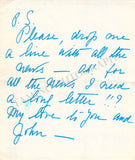 P.S.
Please, drop me
a line with all the
news — as for
all the news I need
a long letter !!
My love to you and
John —